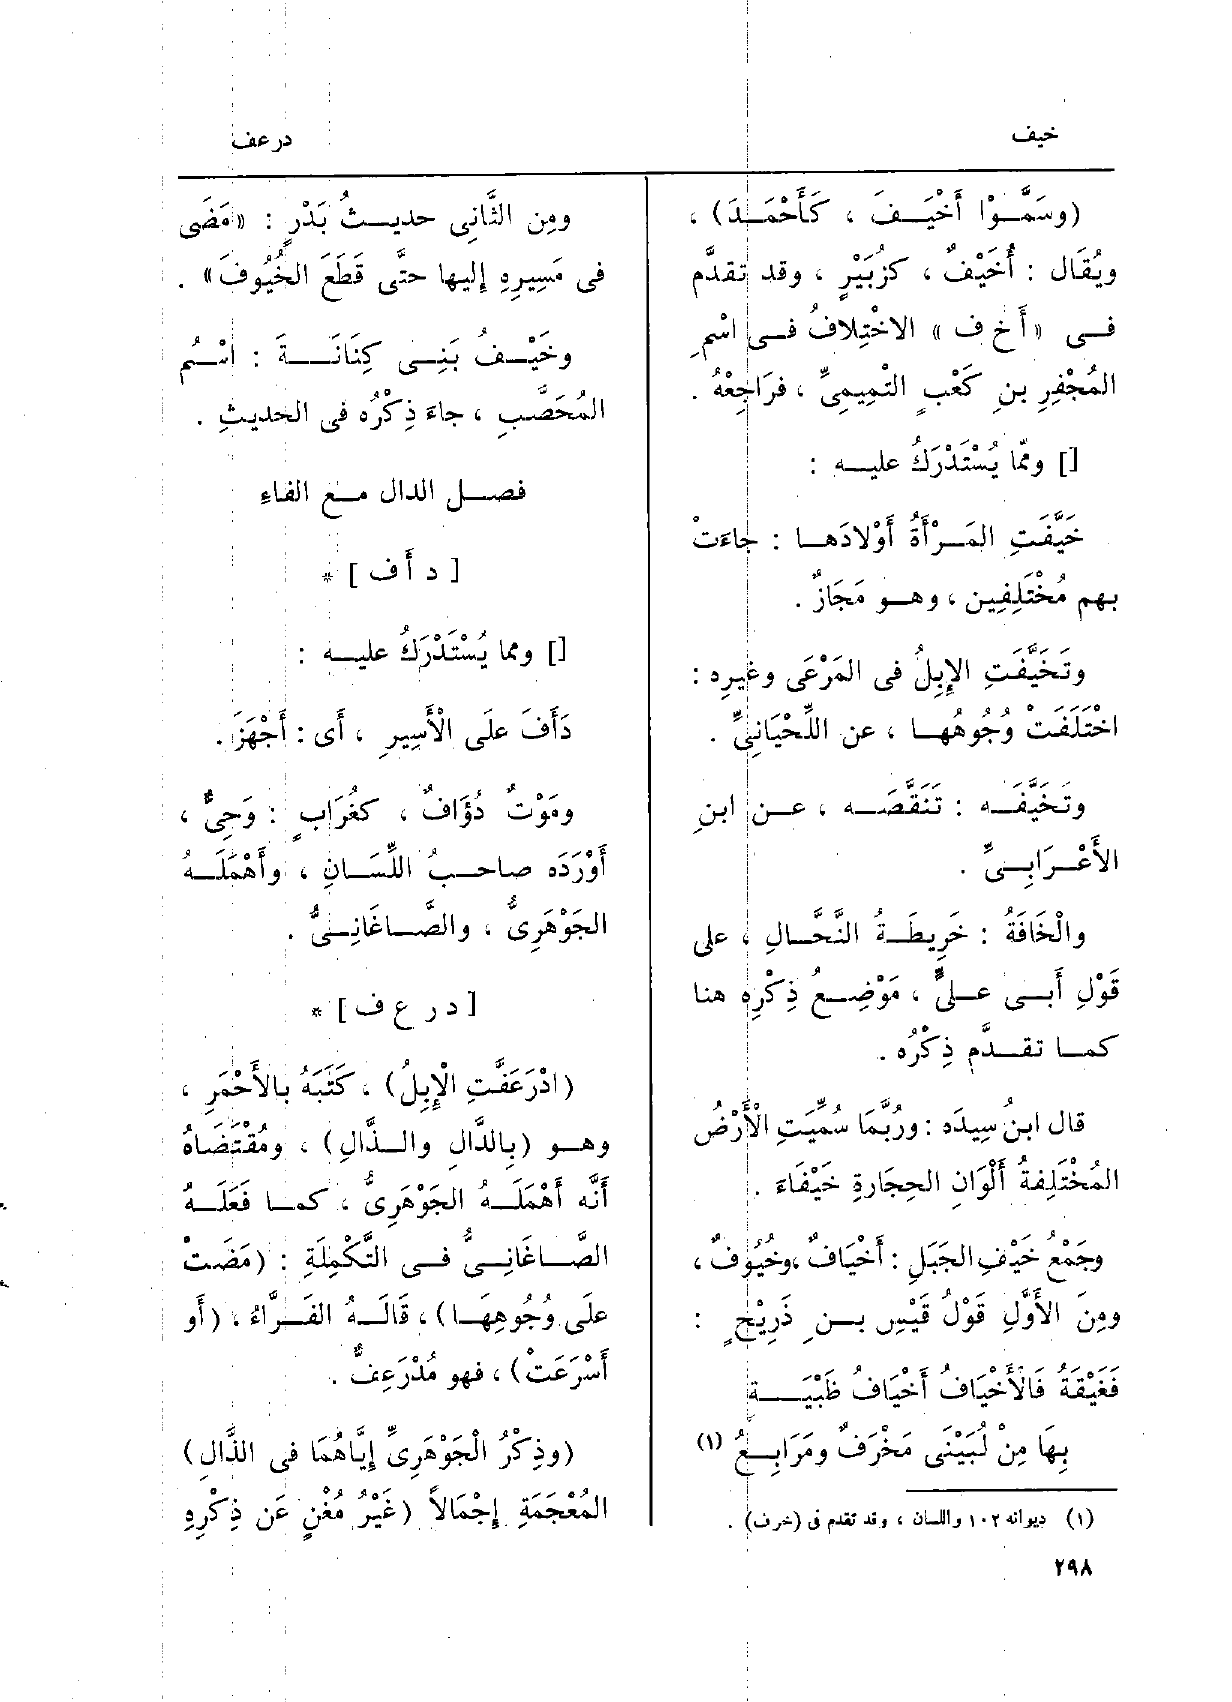 خيف
درعف
(وسَمَّوْا أَخْيَفَ ، كَأَحْمَدَ) ،
ويُقَال : أُخَيْفٌ ، كزُبَيْرٍ ، وقد تقدَّم
فى «أَخ ف» الاخْتِلافُ فى اسْمِ
المُجْفِرِ بنِ كَعْبٍ التَّمِيمِىِّ ، فرَاجِعْهُ .
[] وممّا يُسْتَدْرَكُ عليه :
خَيَّفَتِ المَرْأَةُ أَوْلادَها : جاءَتْ
بهم مُخْتَلِفِين ، وهو مَجَازٌ .
وتَخَيَّفَتِ الإِبِلُ فى المَرْعَى وغيرِه :
اخْتَلَفَتْ وُجُوهُها ، عن اللِّحْيَانِىِّ .
وتَخَيَّفَه : تَنَقَّصَه ، عن ابنِ
الأَعْرَابِىِّ .
والْخَافَةُ : خَرِيطَةُ النَّحَّالِ ، على
قَوْلِ أَبى علىٍّ ، مَوْضِعُ ذِكْرِهِ هنا
كما تقدَّم ذِكْرُه .
قال ابنُ سِيدَه : ورُبَّمَا سُمِّيَتِ الْأَرْضُ
المُخْتَلِفةُ أَلْوَانِ الحِجارةِ خَيْفَاءَ .
وجَمْعُ خَيْفِ الجَبَلِ : أَخْيَافٌ ، وخُيُوفٌ ،
ومِنَ الأَوَّلِ قَوْلُ قَيْسِ بنِ ذَرِيْحٍ :
فَغَيْقَةُ فَالْأَخْيَافُ أَخْيَافُ ظَبْيَةٍ
بِهَا مِنْ لُبَيْنَى مَخْرَفٌ ومَرَابِعُ (١)
(١) ديوانه ١٠٢ واللسان ، وقد تقدم فى (خرف) .
٢٩٨
ومِن الثَّانِى حديثُ بَدْرٍ : «مَضَى
فى مَسِيرِهِ إِليها حتَّى قَطَعَ الخُيُوفَ» .
وخَيْفُ بَنِى كِنَانَةَ : اسْمُ
المُحَصَّبِ ، جاءَ ذِكْرُه فى الحديثِ .
فصل الدال مع الفاءِ
[ د أَ ف ] *
[] ومما يُسْتَدْرَكُ عليه :
دَأَفَ علَى الْأَسِيرِ ، أَى : أَجْهَزَ .
ومَوْتٌ دُؤَافٌ ، كغُرَابٍ : وَحِىٌّ ،
أَوْرَدَه صاحبُ اللِّسَانِ ، وأَهْمَلَهُ
الجَوْهَرِىُّ ، والصَّاغَانِىُّ .
[ د ر ع ف ] *
(ادْرَعَفَّتِ الْإِبِلُ) ، كَتَبَهُ بالأَحْمَرِ ،
وهو (بِالدَّالِ والذَّالِ) ، ومُقْتَضَاهُ
أَنَّه أَهْمَلَهُ الجَوْهَرِىُّ ، كما فَعَلَهُ
الصَّاغَانِىُّ فى التَّكْمِلَةِ : (مَضَتْ
علَى وُجُوهِهَا) ، قَالَهُ الفَرَّاءُ ، (أَو
أَسْرَعَتْ) ، فهو مُدْرَعِفٌّ .
(وذِكْرُ الْجَوْهَرِىِّ إِيَّاهُمَا فى الذَّالِ)
المُعْجَمَةِ إِجْمَالاً (غَيْرُ مُغْنٍ عَن ذِكْرِهِ